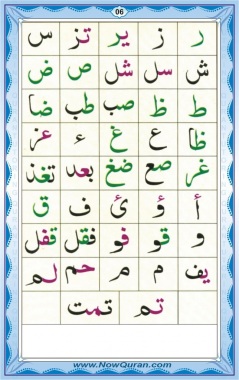 06
ر ز یر تز س
ش سل شل ص ض
ط ظ صب طب ضا
ظا ع غ ء عز
غر صع ضغ بعد تغذ
أ ؤ ئ ف ق
و قو فو فقل قفل
یف م م حم لم
تم تمت
www.NowQuran.com